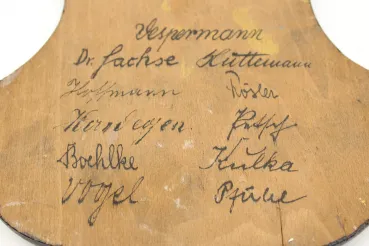 Vespermann
Dr. Sachse Küttemann
Hoffmann Rösler
Kerndegen. Petsch
Boehlke Kulka
Vogel Pfühe